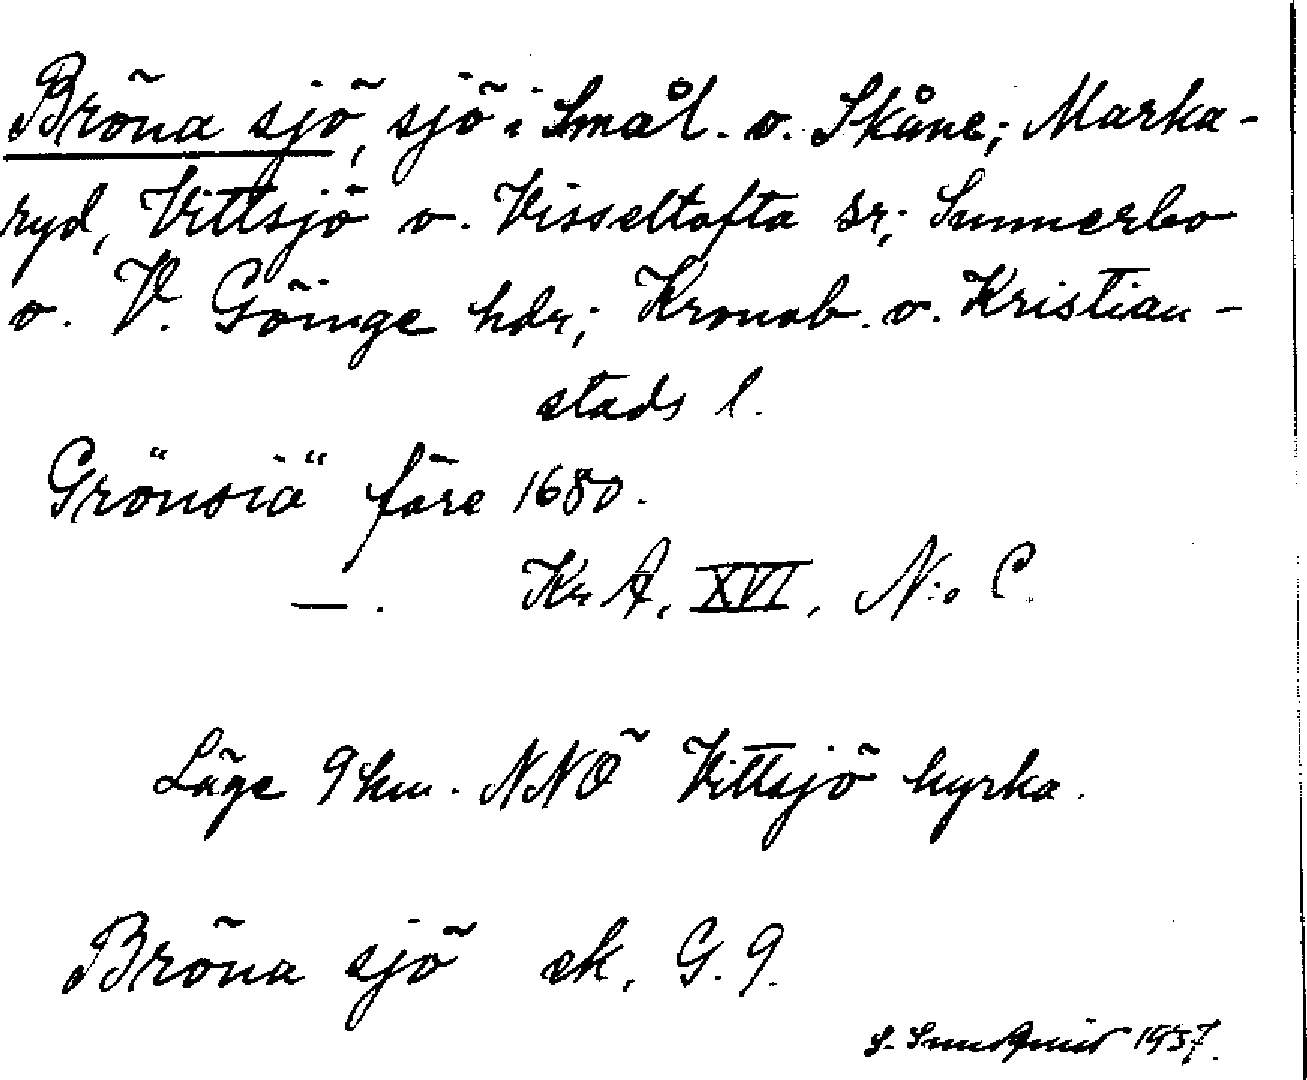 Bröna sjö, sjö i Smål. o. Skåne; Marka-
ryd, Vittsjö o. Visseltofta sr; Sunnerbo
o. V. Göinge hdr; Kronob. o. Kristian-
stads l.
Grönsiö före 1680.
—. Kr A, XVI, N:o C.
Läge 9 km. NNÖ Vittsjö kyrka.
Bröna sjö ek. G. 9.
S. Sundqvist 1937.